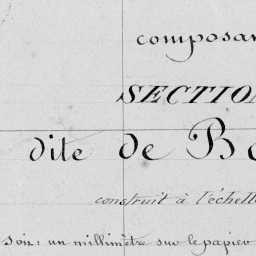 composan
SECTION
dite de Bo
construit à l'échell
soit : un millimètre sur le papier